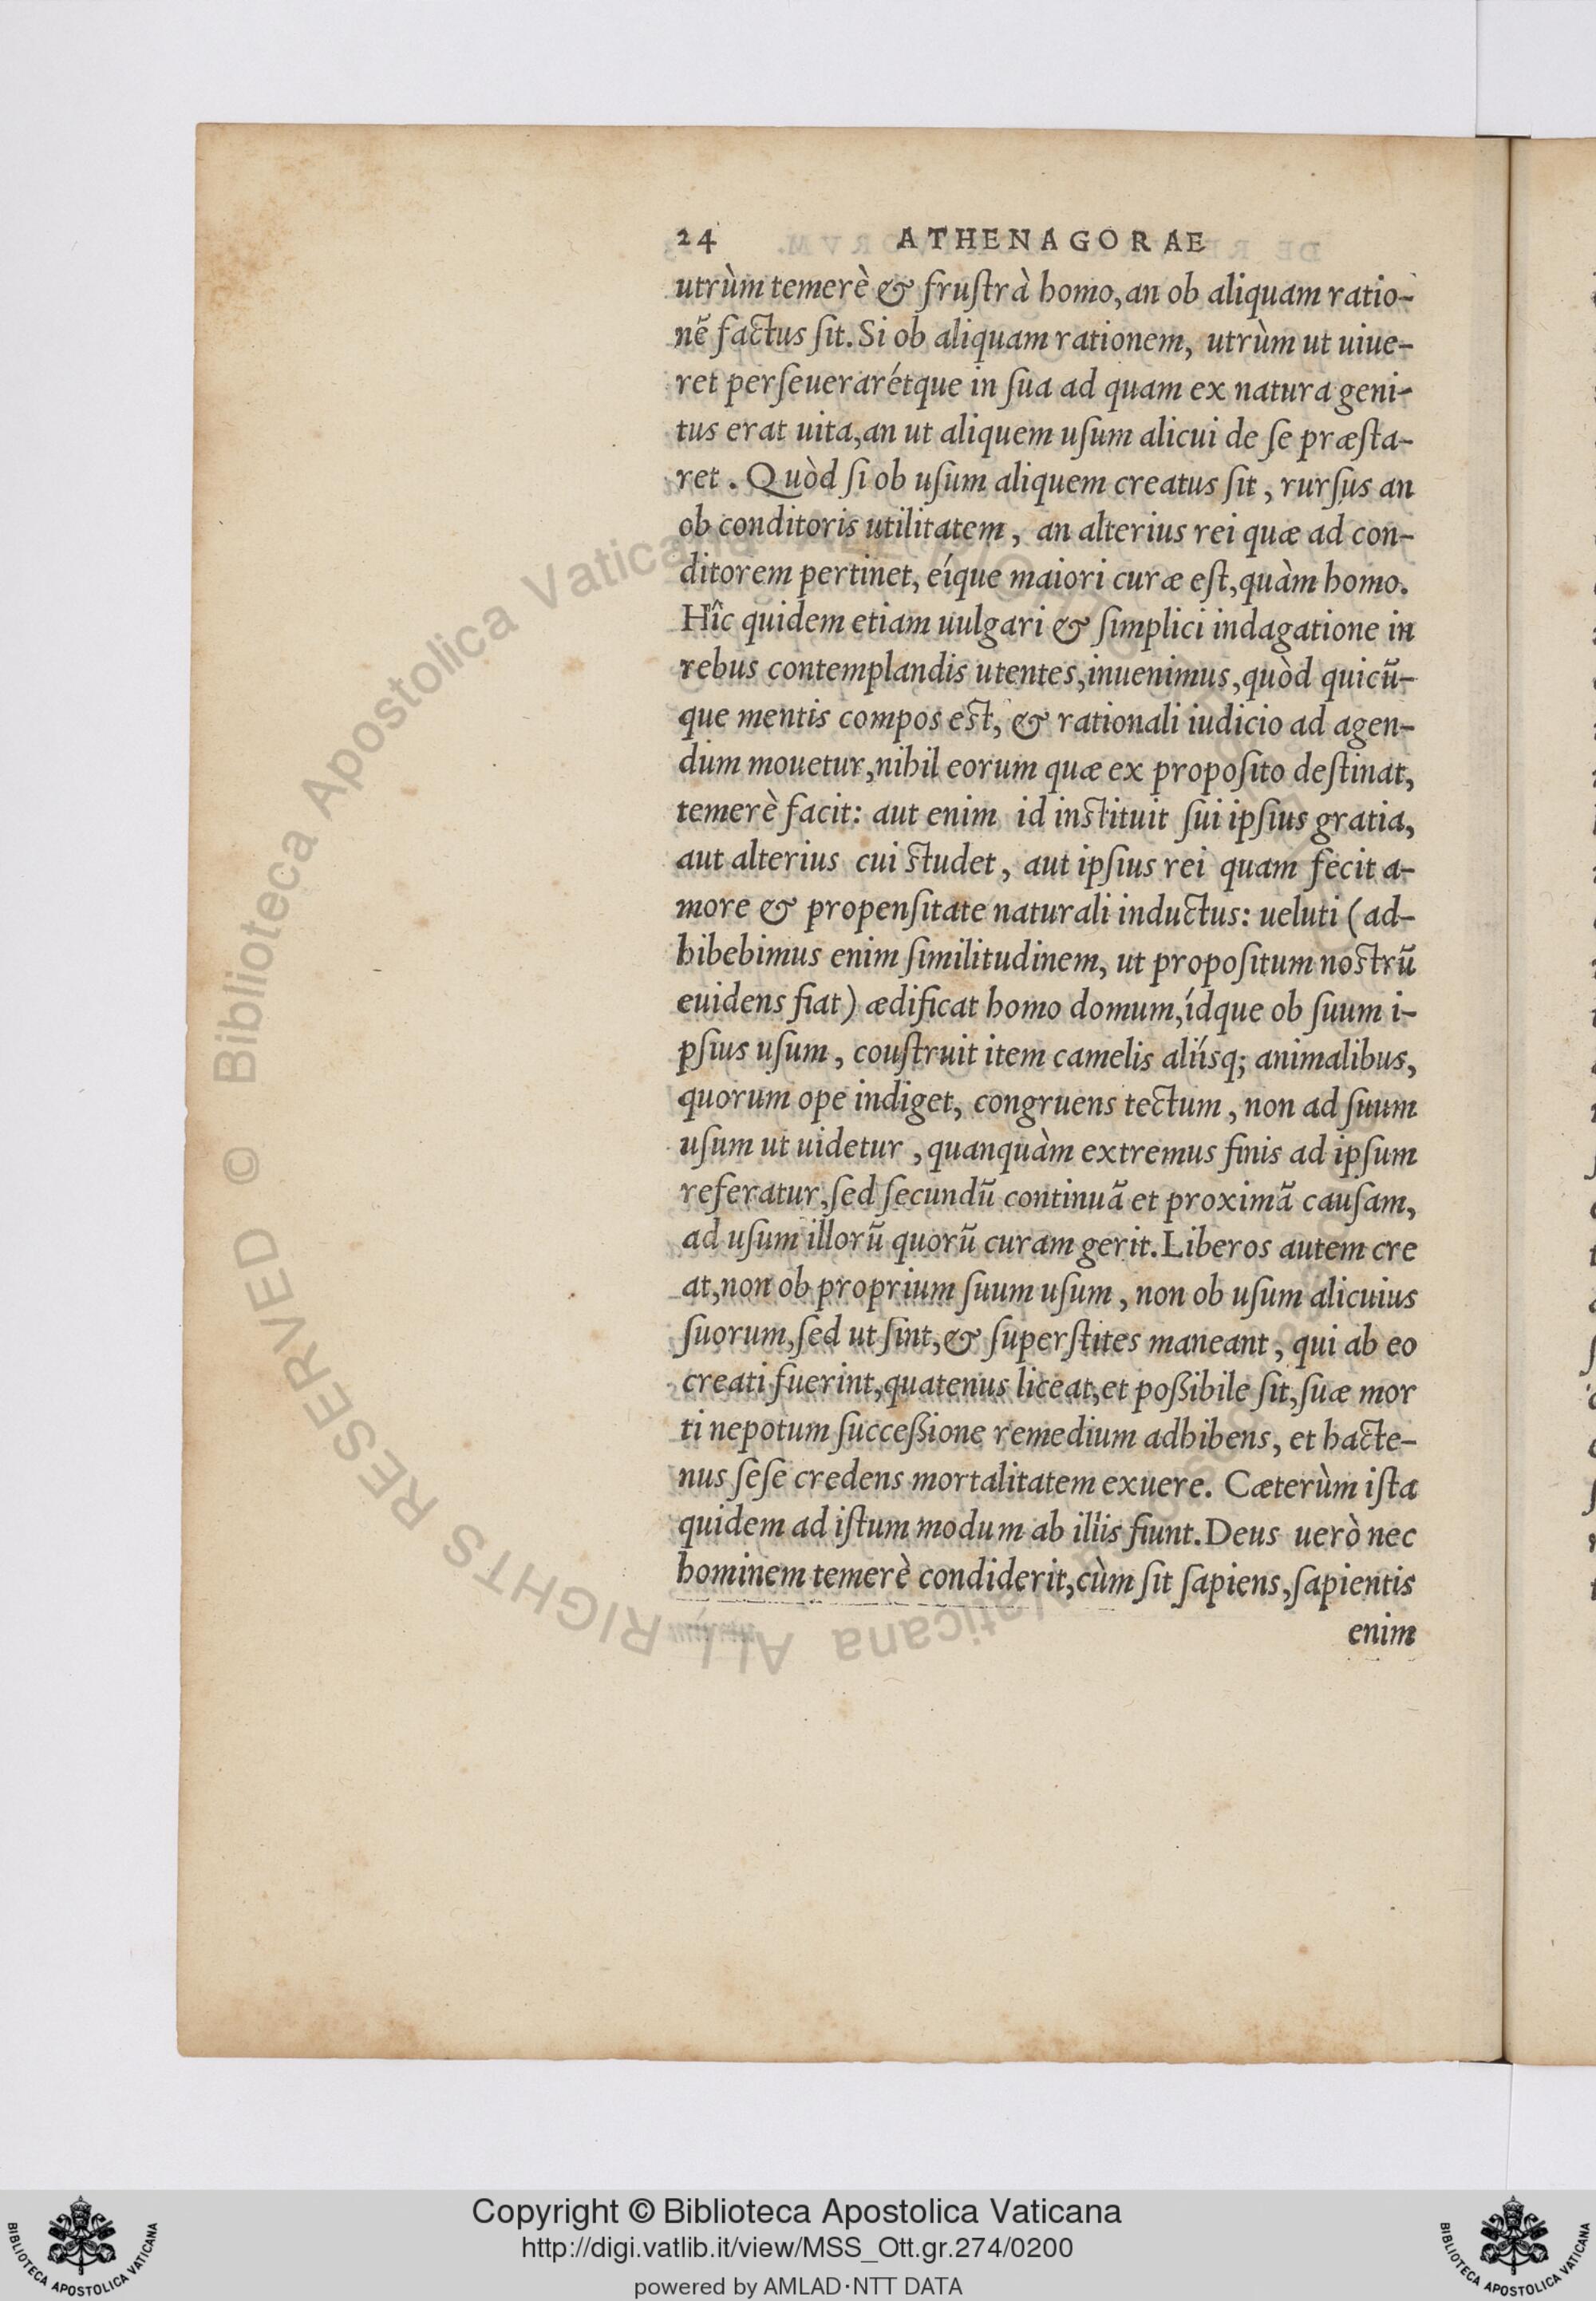 24 ATHENAGORAE
utrùm temerè & fruſtrà homo, an ob aliquam ratio-
nẽ factus ſit. Si ob aliquam rationem, utrùm ut uiue-
ret perſeuerarétque in ſua ad quam ex natura geni-
tus erat uita, an ut aliquem uſum alicui de ſe præſta-
ret. Quòd ſi ob uſum aliquem creatus ſit, rurſus an
ob conditoris utilitatem, an alterius rei quæ ad con-
ditorem pertinet, eíque maiori curæ eſt, quàm homo.
Hîc quidem etiam uulgari & ſimplici indagatione in
rebus contemplandis utentes, inuenimus, quòd quicũ-
que mentis compos eſt, & rationali iudicio ad agen-
dum mouetur, nihil eorum quæ ex propoſito deſtinat,
temerè facit: aut enim id inſtituit ſui ipſius gratia,
aut alterius cui ſtudet, aut ipſius rei quam fecit a-
more & propenſitate naturali inductus: ueluti (ad-
hibebimus enim ſimilitudinem, ut propoſitum noſtrũ
euidens fiat) ædificat homo domum, ídque ob ſuum i-
pſius uſum, couſtruit item camelis aliísq; animalibus,
quorum ope indiget, congruens tectum, non ad ſuum
uſum ut uidetur, quanquàm extremus finis ad ipſum
referatur, ſed ſecundũ continuã et proximã cauſam,
ad uſum illorũ quorũ curam gerit. Liberos autem cre
at, non ob proprium ſuum uſum, non ob uſum alicuius
ſuorum, ſed ut ſint, & ſuperſtites maneant, qui ab eo
creati fuerint, quatenus liceat, et poßibile ſit, ſuæ mor
ti nepotum ſucceßione remedium adhibens, et hacte-
nus ſeſe credens mortalitatem exuere. Cæterùm iſta
quidem ad iſtum modum ab illis fiunt. Deus uerò nec
hominem temerè condiderit, cùm ſit ſapiens, ſapientis
enim
© Biblioteca Apostolica Vaticana ALL RIGHTS RESERVED
Copyright © Biblioteca Apostolica Vaticana
http://digi.vatlib.it/view/MSS_Ott.gr.274/0200
powered by AMLAD·NTT DATA
BIBLIOTECA APOSTOLICA VATICANA
BIBLIOTECA APOSTOLICA VATICANA